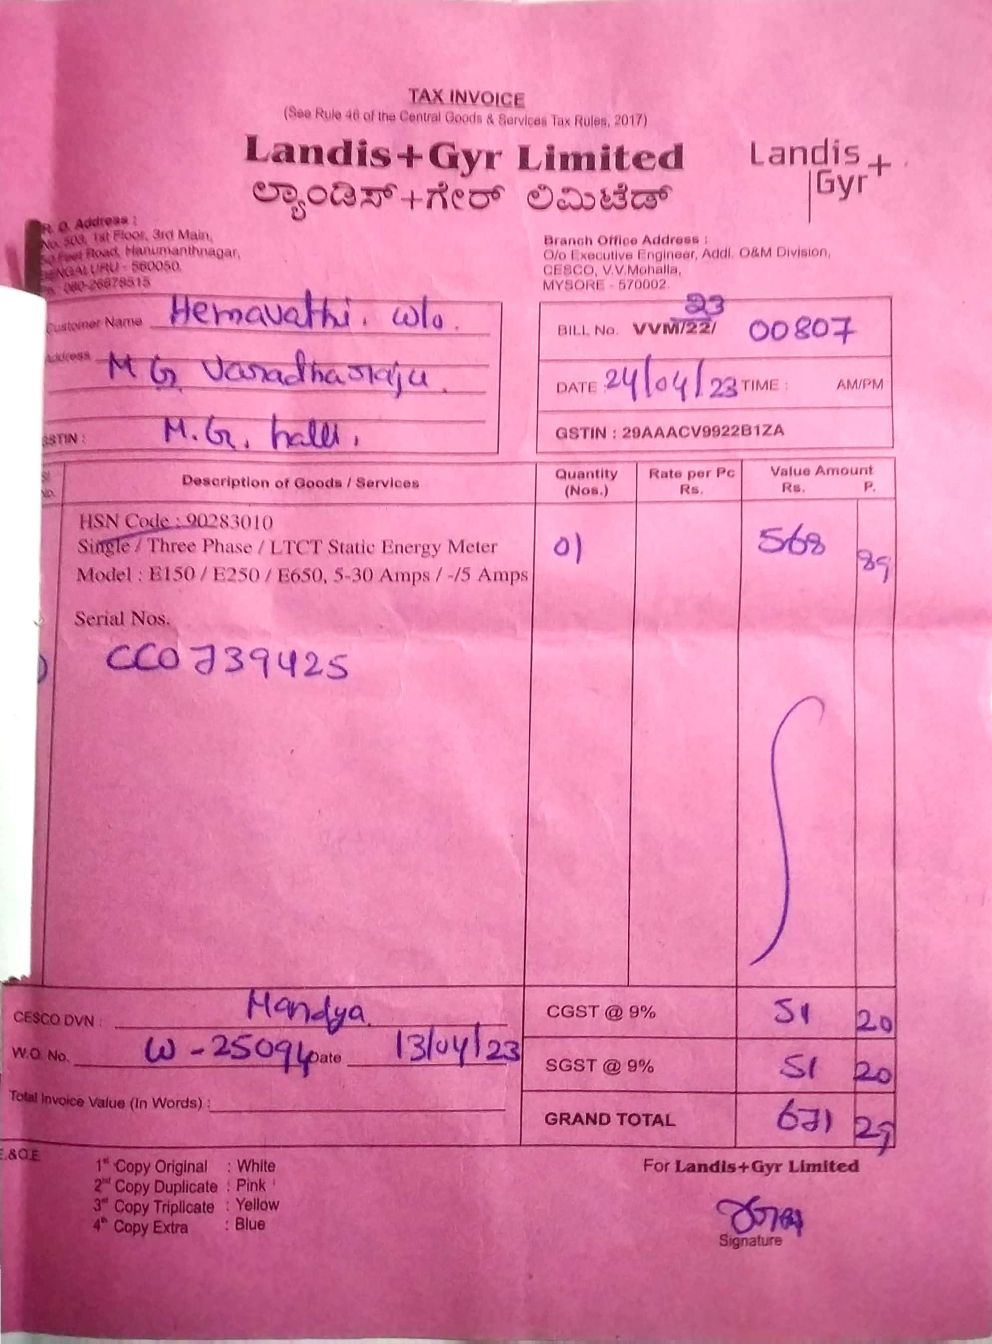 TAX INVOICE
(See Rule 46 of the Central Goods & Services Tax Rules, 2017)
Landis+Gyr Limited
ಲ್ಯಾಂಡಿಸ್+ಗೇರ್ ಲಿಮಿಟೆಡ್
Landis+
Gyr
R. O. Address :
No. 503, 1st Floor, 3rd Main,
Feet Road, Hanumanthnagar,
BENGALURU - 560050.
080-26679515
Branch Office Address :
O/o Executive Engineer, Addl. O&M Division,
CESCO, V.V.Mohalla,
MYSORE - 570002.
Customer Name Hemavathi. w/o.
Address M G Varadharaju
GSTIN : M.G. halli.
23
BILL No. VVM/22/ 00807
DATE 24/04/23 TIME : AM/PM
GSTIN : 29AAACV9922B1ZA
Sl No. Description of Goods / Services Quantity (Nos.) Rate per Pc Rs. Value Amount Rs. P.
HSN Code : 90283010
Single / Three Phase / LTCT Static Energy Meter 01 568 89
Model : E150 / E250 / E650, 5-30 Amps / -/5 Amps
Serial Nos.
CC0739425
CESCO DVN : Mandya
W.O. No. W-25094 Date 13/04/23
Total Invoice Value (In Words) :
CGST @ 9% 51 20
SGST @ 9% 51 20
GRAND TOTAL 671 29
E.&O.E
1st Copy Original : White
2nd Copy Duplicate : Pink
3rd Copy Triplicate : Yellow
4th Copy Extra : Blue
For Landis+Gyr Limited
Signature